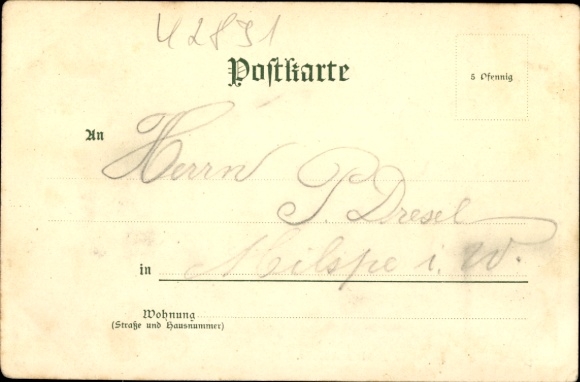 42831
Postkarte
5 Pfennig
An
Herrn
P. Dresel
in Milspe i. W.
Wohnung
(Straße und Hausnummer)